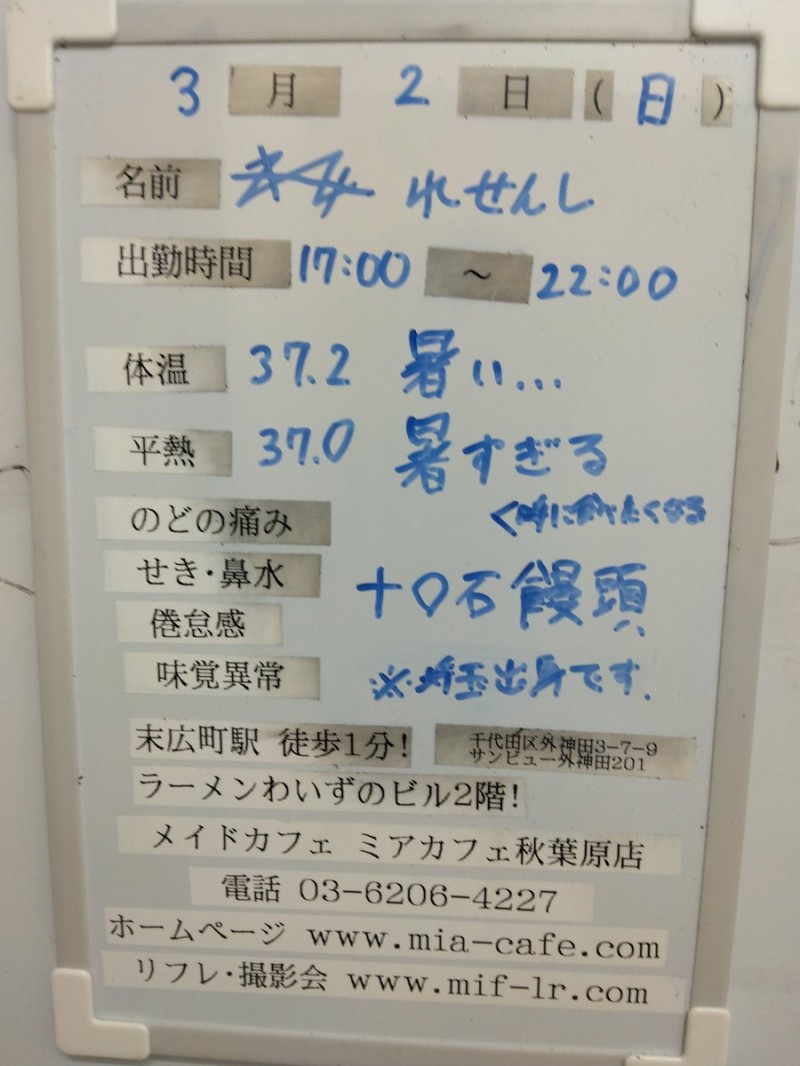 3 月 2 日 (日)
名前 れせんし
出勤時間 17:00 ～ 22:00
体温 37.2 暑い...
平熱 37.0 暑すぎる
のどの痛み
たくなる
せき・鼻水
十〇石饅頭
倦怠感
味覚異常
※埼玉出身です.
末広町駅 徒歩1分!
千代田区外神田3-7-9
サンビュー外神田201
ラーメンわいずのビル2階!
メイドカフェ ミアカフェ秋葉原店
電話 03-6206-4227
ホームページ www.mia-cafe.com
リフレ・撮影会 www.mif-lr.com